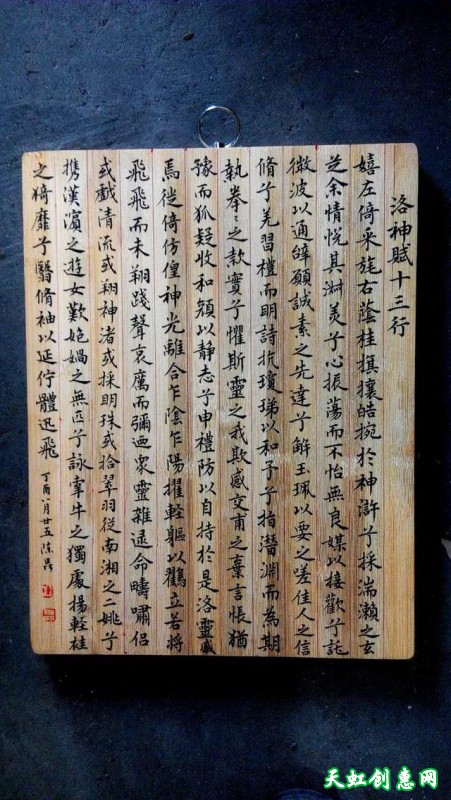 洛神賦十三行
嬉左倚采旄右蔭桂旗攘皓捥於神滸兮採湍瀨之玄
芝余情悅其淋美兮心振蕩而不怡無良媒以接歡兮託
微波以通辭願誠素之先達兮解玉珮以要之嗟佳人之信
脩兮羌習禮而明詩抗瓊珶以和予兮指潛淵而為期
執拳〻之款實兮懼斯靈之我欺感交甫之棄言悵猶
豫而狐疑收和顏以靜志兮申禮防以自持於是洛靈感
焉徙倚仿偟神光離合乍陰乍陽擢輕軀以鶴立若將
飛飛而未翔踐聲哀厲而彌迊眾靈雜遝命疇嘯侶
或戲清流或翔神渚或採明珠或拾翠羽從南湘之二姚兮
攜漢濱之遊女歎匏媧之無匹兮詠牽牛之獨處揚輕桂
之猗靡兮翳脩袖以延佇體迅飛
丁酉八月廿五陳
天虹创惠网